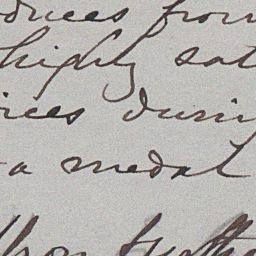 duces from
highly sat
ices durin
a medal